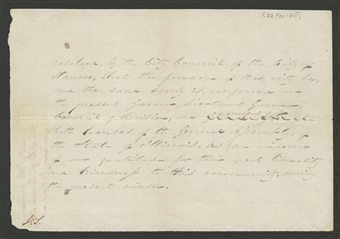 [22 Feb 1841]
Resolved, by the City Council of the City of
Nauvoo, that the freedom of the city be,
and the same hereby is, conferred on
the present Governor, Lieutenant Governor,
Council of Revision, and members of
both houses of the General Assembly, of
the State of Illinois, as an evidence
of our gratitude for their great
and kindness to this community, during
the present winter.